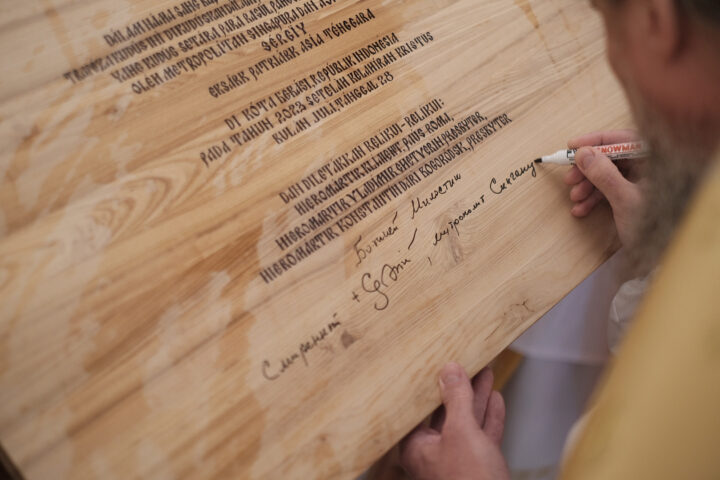 DALAM NAMA SANG
YANG KUDUS SETARA PARA RASUL
OLEH METROPOLITAN SINGAPURA DAN
SERGIY
EKSARK PATRIARK ASIA TENGGARA
DI KOTA BEKASI REPUBLIK INDONESIA
PADA TAHUN 2023 SETELAH KELAHIRAN KRISTUS
BULAN JULI, TANGGAL 28
DAN DILETAKKAN RELIKUI-RELIKUI:
HIEROMARTIR KLIMENT, PAUS ROMA,
HIEROMARTIR VLADIMIR
HIEROMARTIR KONSTANTIN DARI BOGORODSK, PRESBYTER
Божией Милостию
Смиренный + Сергий, митрополит Сингапу
SNOWMAN